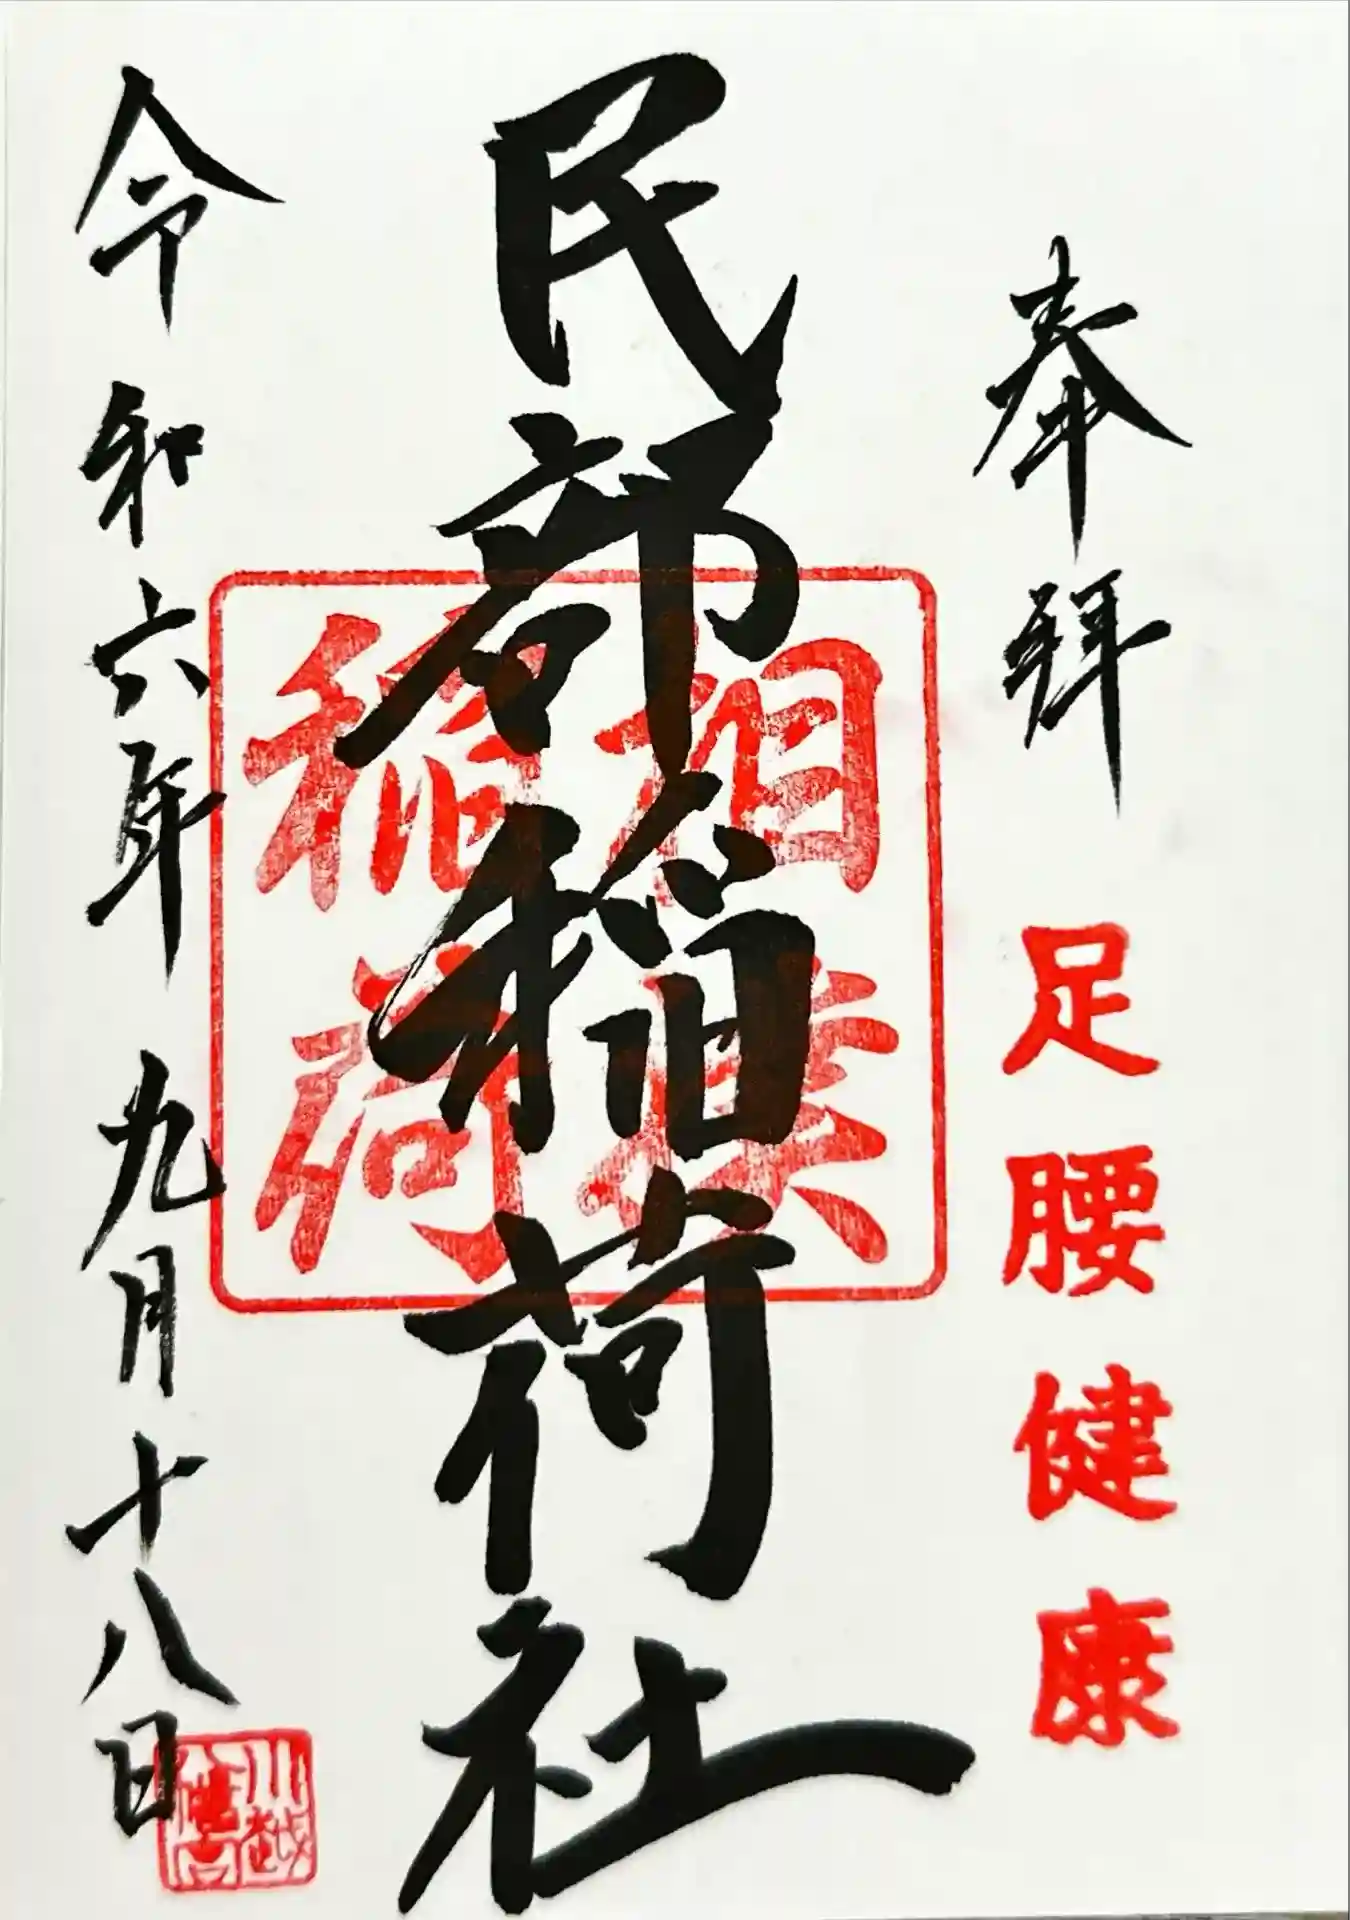 奉拝
足腰健康
民部稲荷社
相撲
稲荷
令和六年 九月十八日
川越